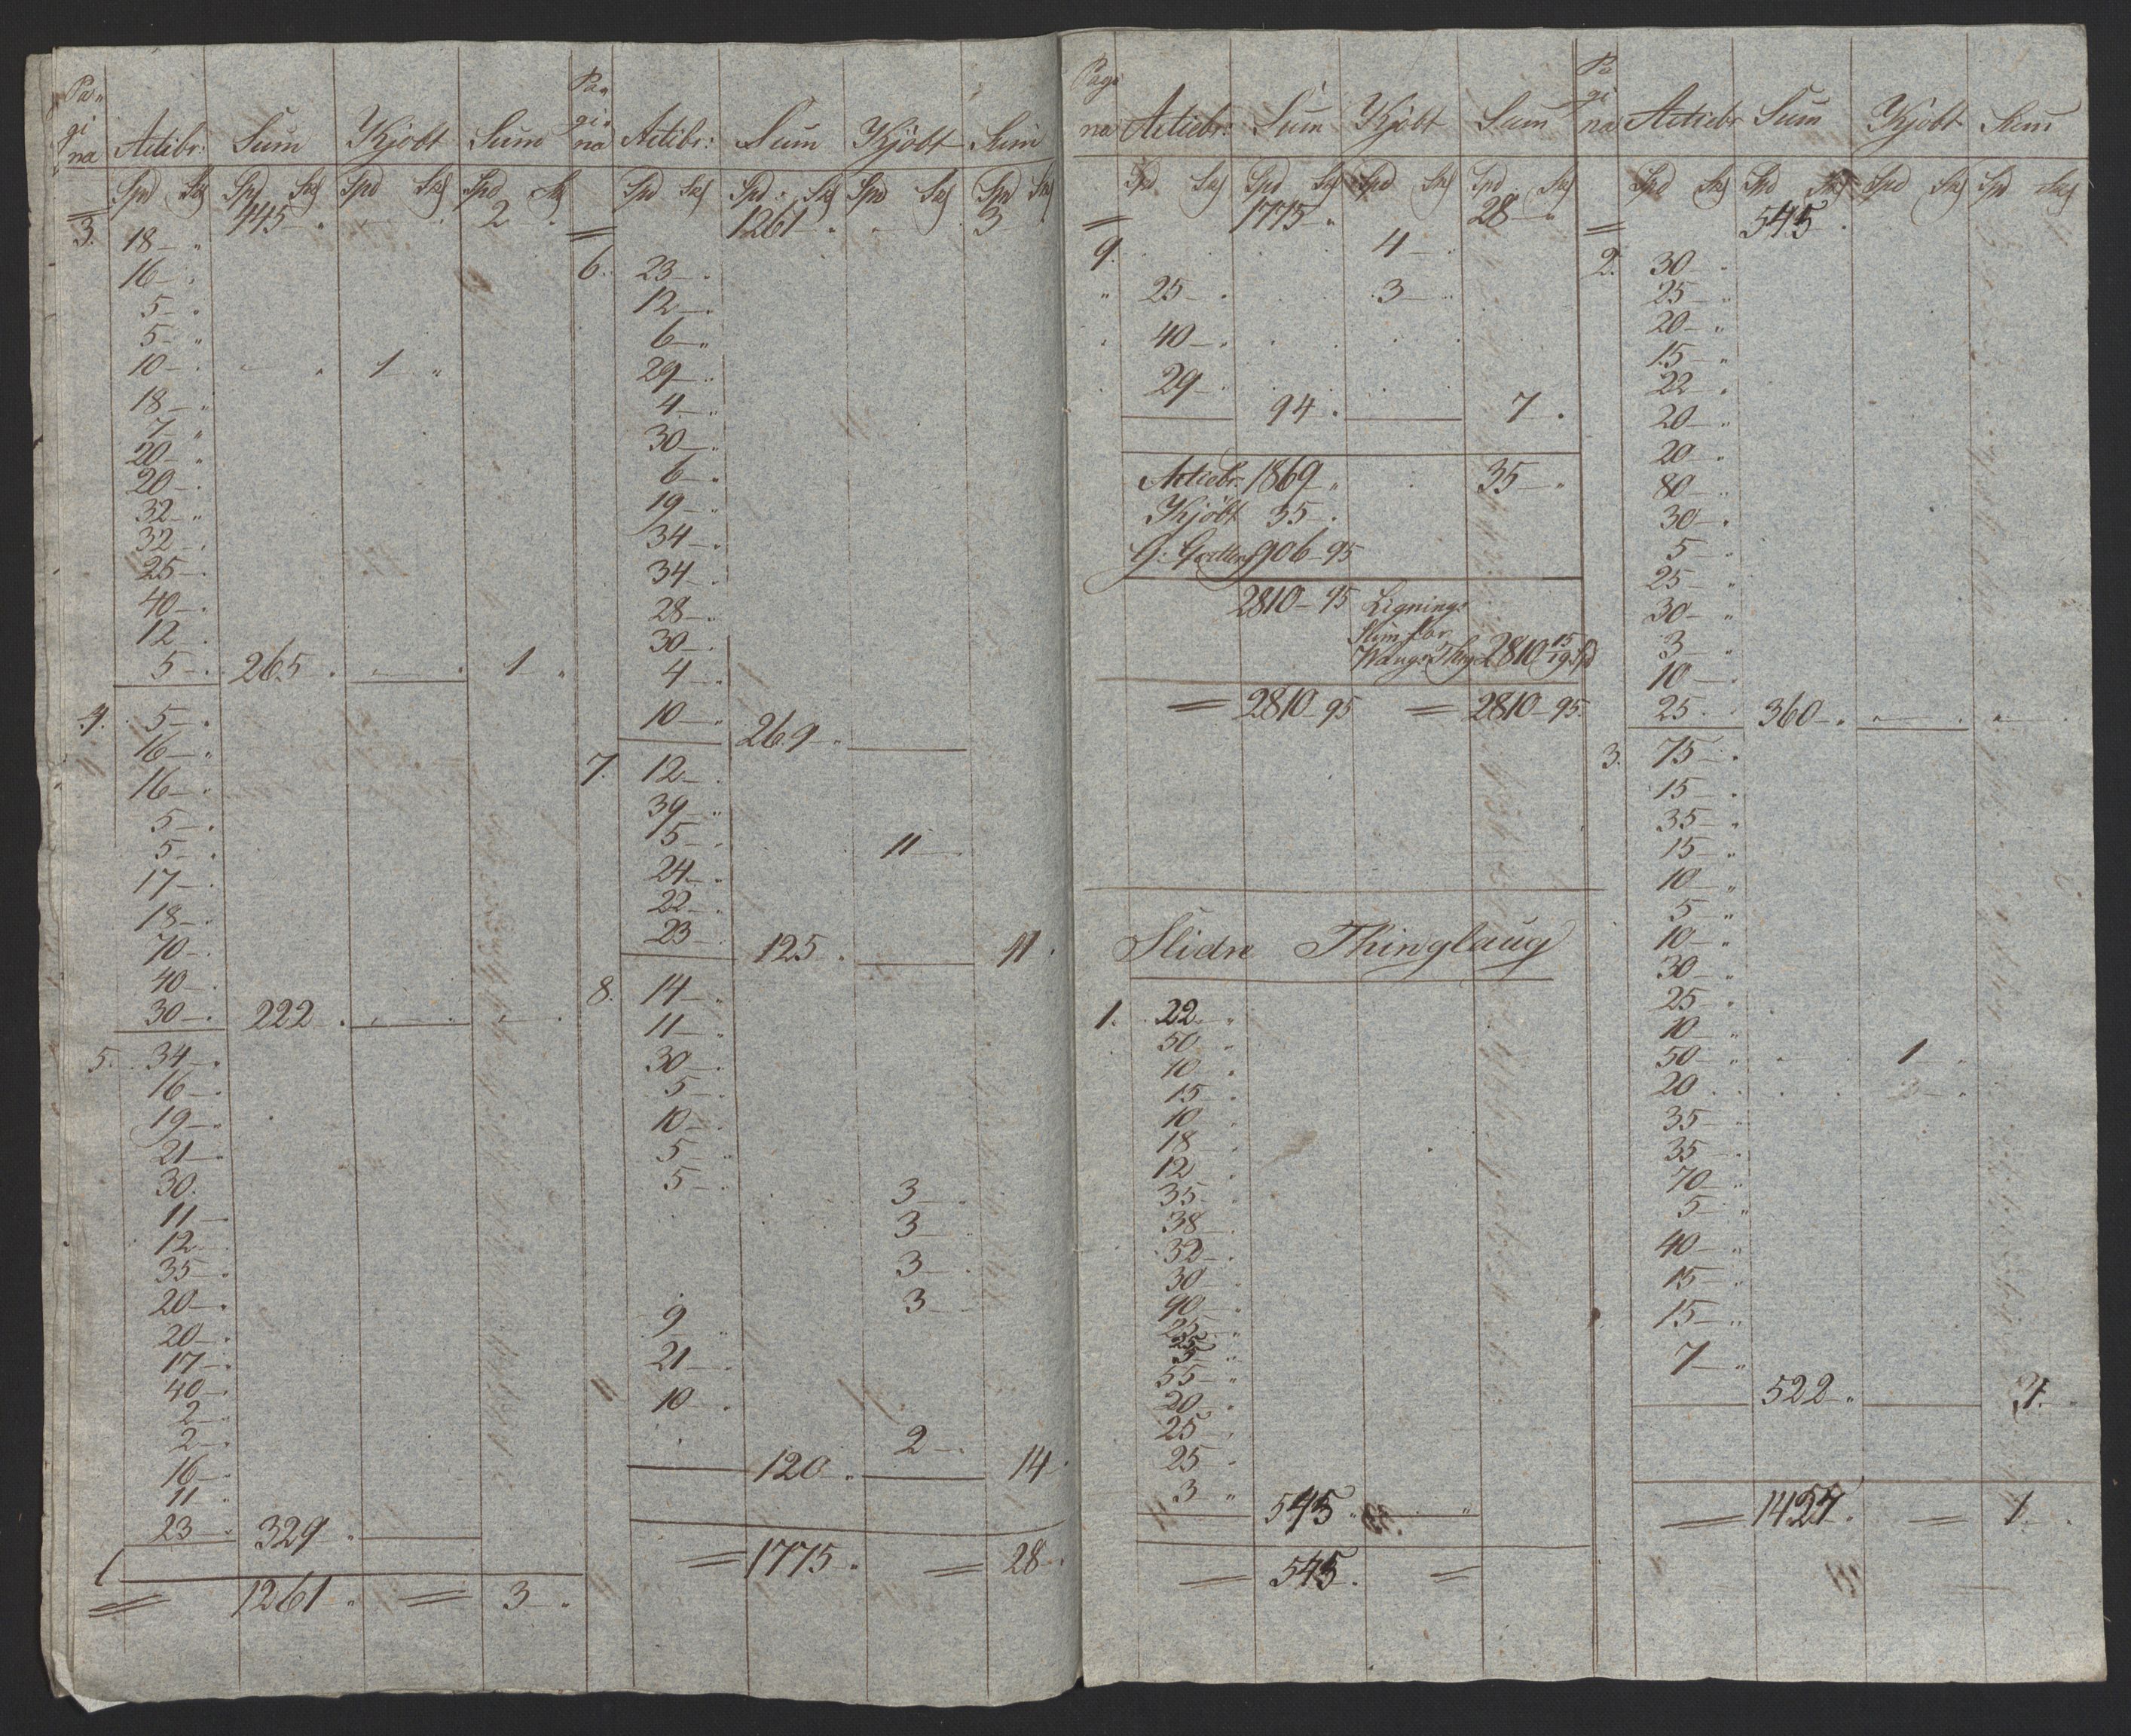 Pa-
gi
na Actibr: Sum Kjöbt Sum
Spd Sk Spd Sk Spd Sk Spd Sk
445 " 2 "
3. 18 "
16 "
5 "
5 "
10 " 1 "
18 "
7 "
20 "
20 "
32 "
32 "
25 "
40 "
12 "
5 " 265 " 1 "
4. 5 "
16 "
16 "
5 "
5 "
17 "
18 "
70 "
40 "
30 " 222 "
5. 34 "
16 "
19 "
21 "
30 "
11 "
12 "
35 "
20 "
20 "
17 "
40 "
2 "
2 "
16 "
11 "
23 " 329 "
= 1261 " = 3 "
Pa-
gi-
na Actibr: Sum Kjöbt Sum
Spd Sk Spd: Sk Spd Sk Spd Sk
= 1261 " 3 "
6. 23 "
12 "
6 "
29 "
4 "
30 "
6 "
19 "
34 "
34 "
28 "
30 "
4 "
10 " 269 "
7. 12 "
39 "
5 " 11 "
24 "
22 "
23 " 125 " 11 "
8. 14 "
11 "
30 "
5 "
10 "
5 "
5 " 3 "
3 "
3 "
3 "
9 "
21 "
10 "
2 "
120 " 14 "
= 1775 " = 28 "
Pagi
na Actiebr: Sum Kjöbt Sum
Spd Sk Spd Sk Spd Sk Spd Sk
= 1775 " 28 "
9. 4 "
" 25 " 3 "
40 "
29 "
94 " 7 "
Actiebr 1869 " 35 "
Kjöbt 35 "
906 - 95
2810 - 95 Lignings
Sum for
Wangs Thgl 2810 95/120 Spd
= 2810 - 95 = 2810 - 95
Slidre Thinglaug
1. 22 "
50 "
10 "
15 "
10 "
18 "
12 "
35 "
38 "
32 "
30 "
90 "
25 "
5 "
55 "
20 "
25 "
25 "
3 " 545 "
= 545 " =
Pa
gi
na Actiebr Sum Kjöbt Sum
Spd Sk Spd Sk Spd Sk Spd Sk
= 545 "
2. 30 "
25 "
20 "
15 "
22 "
20 "
20 "
80 "
30 "
5 "
25 "
30 "
3 "
10 "
25 " 360 "
3. 75 "
15 "
35 "
15 "
10 "
5 "
10 "
30 "
25 "
10 "
50 " 1 "
20 "
35 "
35 "
70 "
5 "
40 "
15 "
15 "
7 "
522 " 1 "
= 1427 " = 1 "